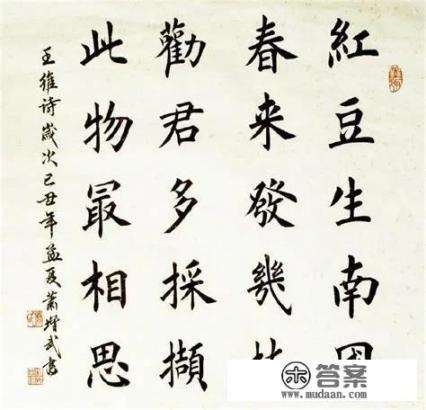 紅豆生南國
春来發幾枝
勸君多採擷
此物最相思
王維诗歲次己丑年孟夏蕭
武書
答案
www.mudaan.com